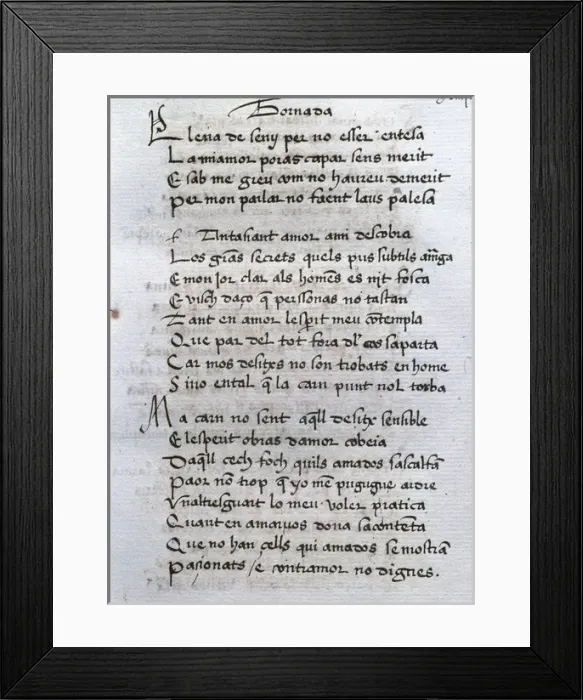 Tornada
Llena de seny per no esser entesa
La miamor poras capar sens merit
E sab me greu com no haureu demerit
Per mon parlar no faent laus palesa
Fantasiant amor ami descobra
Los grãs secrets quels pus subtils
E mon jor clar als homẽs es nit fosca
E visch daço q̃ perssonas no tastan
Tant en amor lesperit meu cõtempla
Que par del tot fora dl' cos saparta
Car mos desitxs no son trobats en home
Sino en tal q̃ la carn punt nol torba
Ma carn no sent aq̃ll desitx sensible
E lesperit obras damor cobeia
Daq̃ll cech foch quils amados sascalfã
Paor nõ trop q̃ yo mẽ pugugue ardre
Vnaltresguart lo meu voler pratica
Quant en amaruos dona sacontẽta
Que no han cells qui amados se mostrã
Passionats / e contramor no dignes.